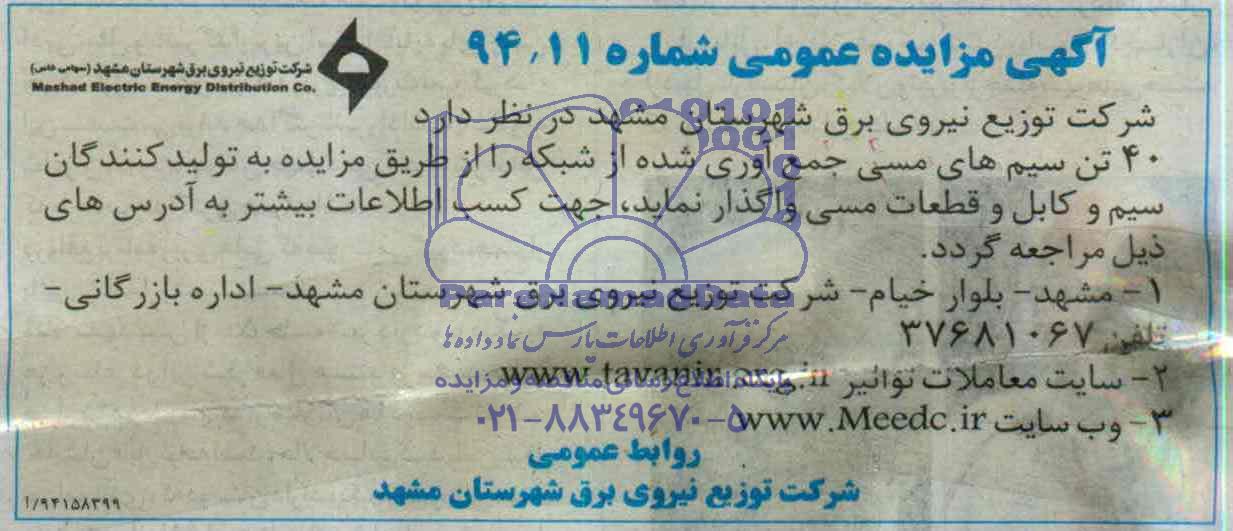 آگهی مزایده عمومی شماره ۹۴٫۱۱
شرکت توزیع نیروی برق شهرستان مشهد (سهامی خاص)
Mashad Electric Energy Distribution Co.
شرکت توزیع نیروی برق شهرستان مشهد در نظر دارد
۴۰ تن سیم های مسی جمع آوری شده از شبکه را از طریق مزایده به تولیدکنندگان
سیم و کابل و قطعات مسی واگذار نماید، جهت کسب اطلاعات بیشتر به آدرس های
ذیل مراجعه گردد.
۱- مشهد- بلوار خیام- شرکت توزیع نیروی برق شهرستان مشهد- اداره بازرگانی-
تلفن ۳۷۶۸۱۰۶۷
۲- سایت معاملات توانیر www.tavanir.org.ir
۳- وب سایت www.Meedc.ir
روابط عمومی
شرکت توزیع نیروی برق شهرستان مشهد
۱/۹۴۱۵۸۳۹۹
ParsNamadData
مرکز فرآوری اطلاعات پارس نماد داده ها
پایگاه اطلاع رسانی مناقصه و مزایده
۰۲۱-۸۸۳۴۹۶۷۰-۵